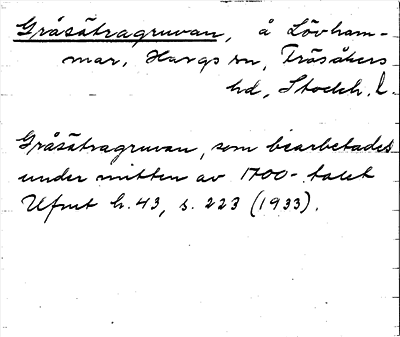 Gråsätragruvan, å Lövham-
mar, Hargs sn, Fräsåkers
hd, Stockh. l.
Gråsätragruvan, som bearbetades
under mitten av 1700-talet
Ufmt h. 43, s. 223 (1933).